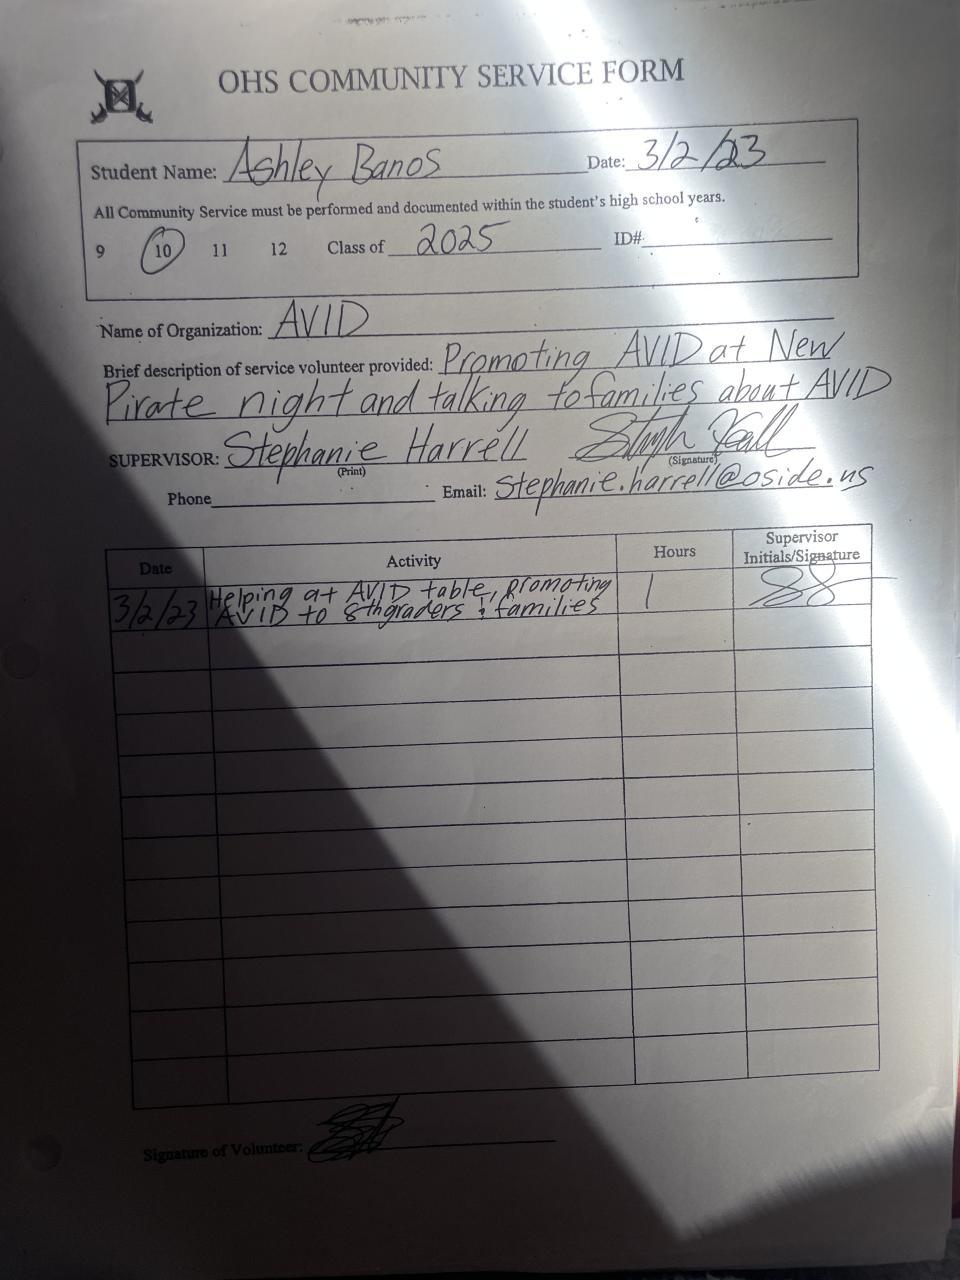 OHS COMMUNITY SERVICE FORM
Student Name: Ashley Banos Date: 3/2/23
All Community Service must be performed and documented within the student's high school years.
9 10 11 12 Class of 2025 ID#
Name of Organization: AVID
Brief description of service volunteer provided: Promoting AVID at New
Pirate night and talking to families about AVID
SUPERVISOR: Stephanie Harrell
(Print) (Signature)
Phone Email: Stephanie.harrell@oside.us
Date Activity Hours Supervisor
Initials/Signature
3/2/23 Helping at AVID table, promoting 1
AVID to 8thgraders & families
Signature of Volunteer: